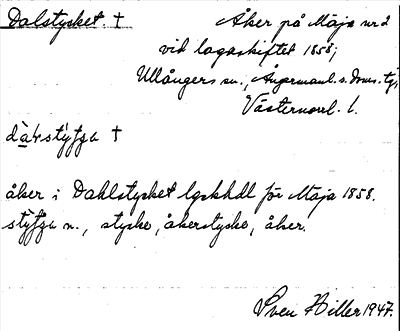 Dalstycket. † Åker på Mäja nr 2
vid lagaskiftet 1858;
Ullångers sn., Ångermanl. s. doms. tjl.
Västernorrl. l.
dà₂lstýʃʒa †
åker i Dahlstycket lgskhdl för Mäja 1858.
stýʃʒa n., stycke, åkerstycke, åker.
Sven Hiller 1947.